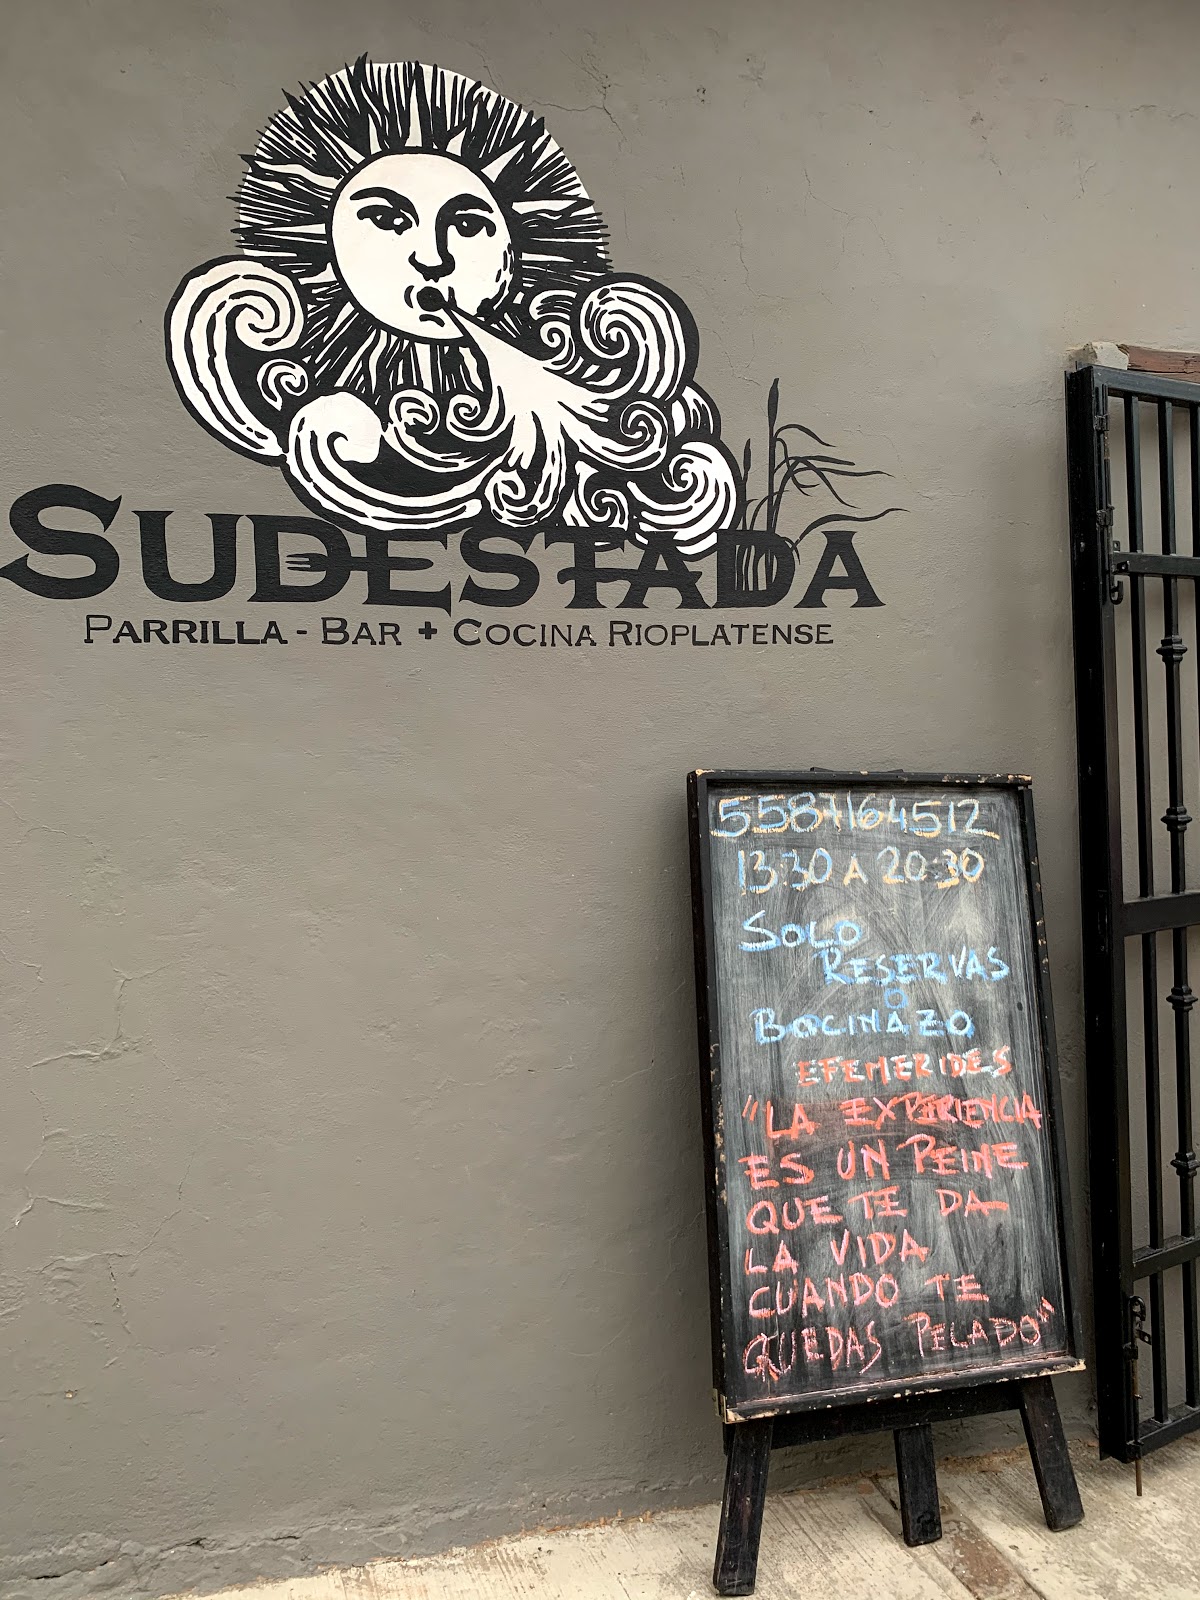 SUDESTADA
PARRILLA - BAR + COCINA RIOPLATENSE
5587164512
13:30 A 20:30
SOLO
RESERVAS
O
BOCINAZO
EFEMERIDES
"LA EXPERIENCIA
ES UN PEINE
QUE TE DA
LA VIDA
CUANDO TE
QUEDAS PELADO"